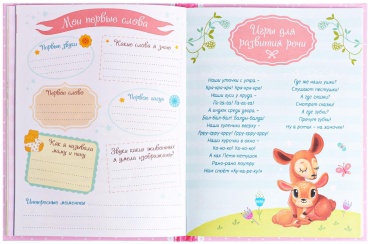 Мои первые слова
Первые звуки
Какие слова я знаю
Первое слово
Первая фраза
Как я называю
маму и папу
Звуки каких животных
я умею изображать?
Интересные моменты
Игры для
развития речи
Наши уточки с утра –
Кря-кря-кря! Кря-кря-кря!
Наши гуси у пруда –
Га-га-га! Га-га-га!
А индюк среди двора –
Бал-бал-бал! Балды-балда!
Наши гуленьки вверху –
Грру-грру-грру! Грру-грру-грру!
Наши курочки в окно –
Ко-ко-ко! Ко-ко-ко!
А как Петя-петушок
Рано-рано поутру
Нам споёт «Ку-ка-ре-ку!»
Где же наши ушки?
Слушают пестушки!
А где глазки?
Смотрят сказки!
А где зубки?
Прячут губки!
Ну а ротик – на замочек!